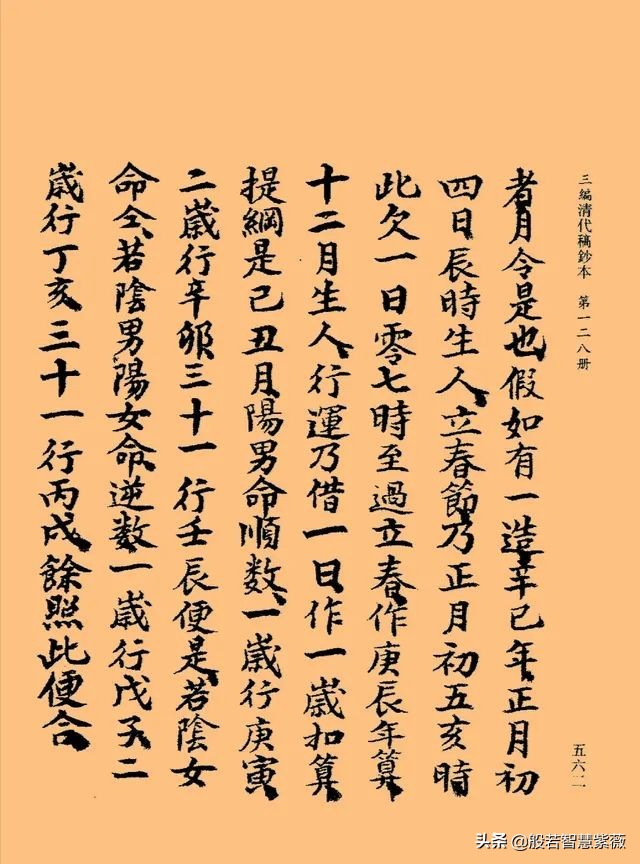 三編清代稿鈔本 第一二八册
者月令是也假如有一造辛巳年正月初
四日辰時生人立春節乃正月初五亥時
此欠一日零七時至過立春作庚辰年算
十二月生人行運乃借一日作一歲扣算
提綱是己丑月陽男命順数一歲行庚寅
二歲行辛卯三十一行壬辰便是若陰女
命仝若陰男陽女命逆数一歲行戊子二
歲行丁亥三十一行丙戌餘照此便合
五六二
头条 @般若智慧紫薇